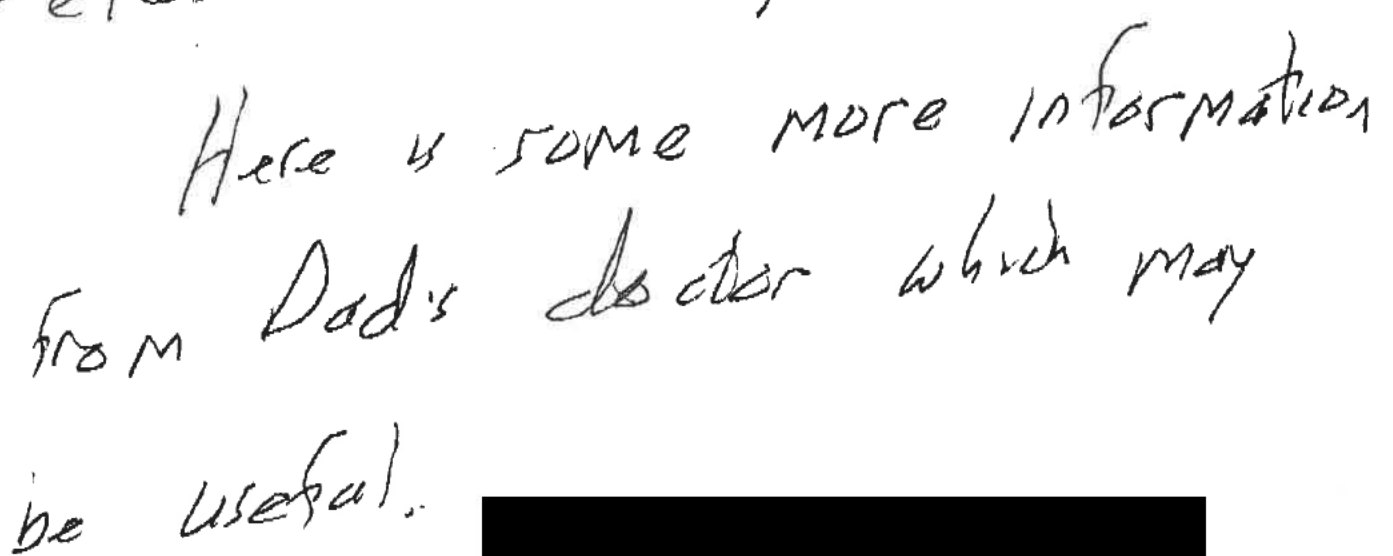 Here is some more information
from Dad's doctor which may
be useful.